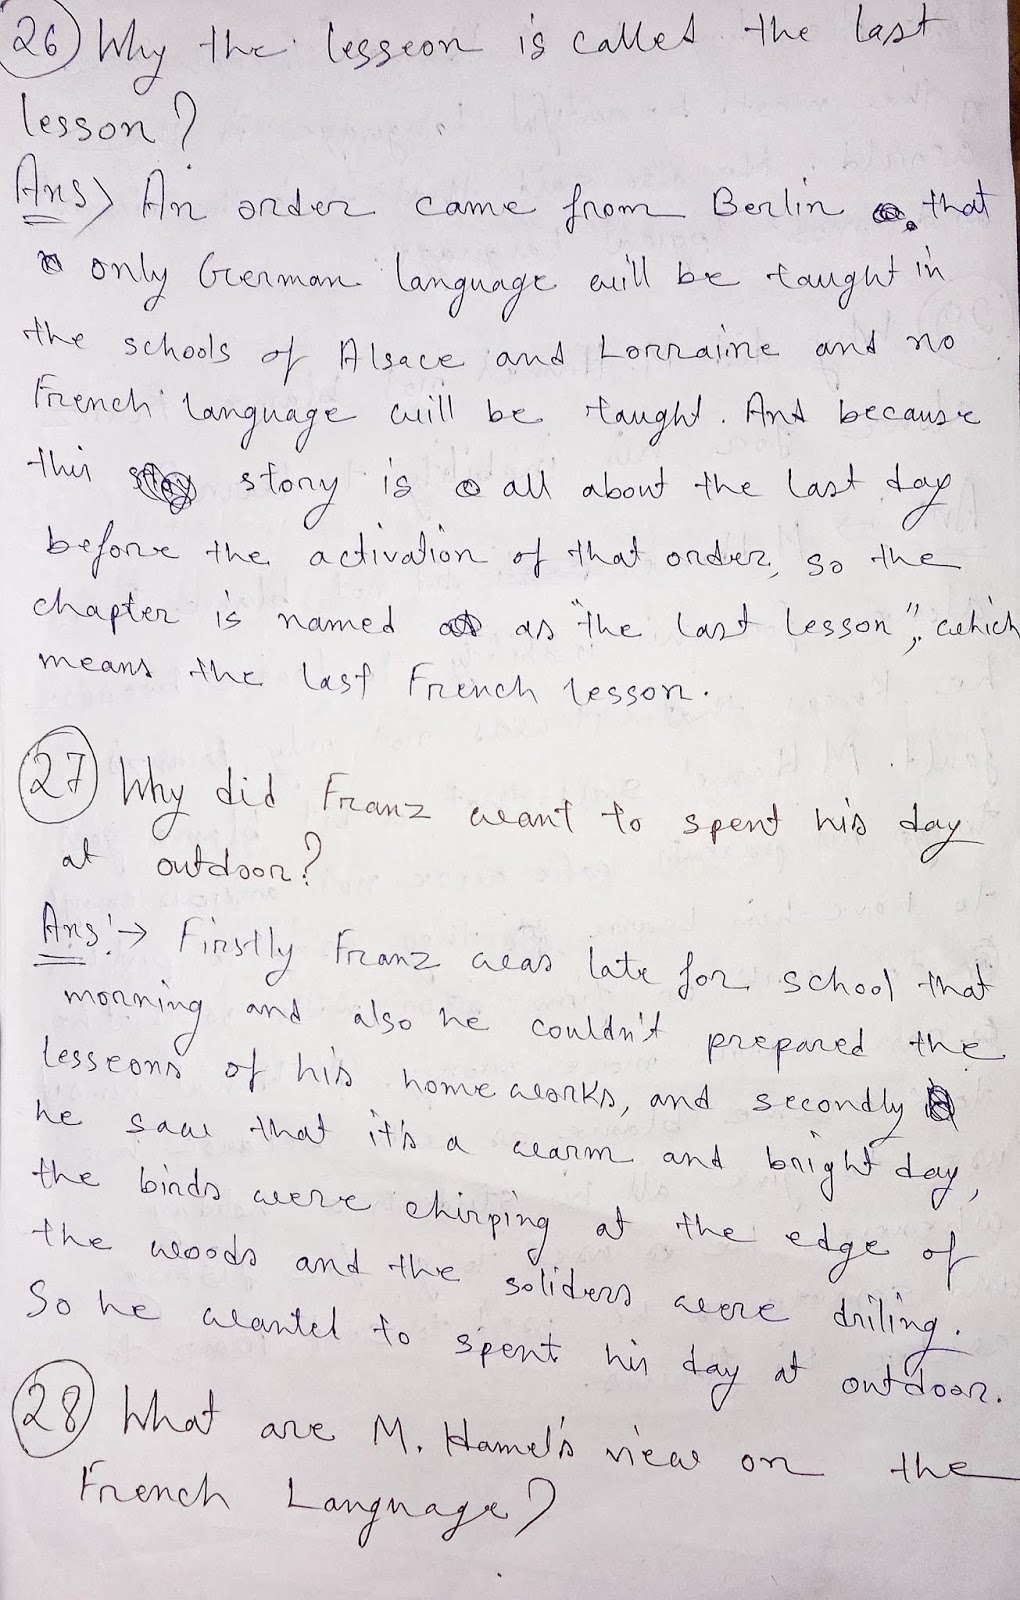 26) Why the lesseon is called the last
lesson?
Ans) An order came from Berlin that
only German language will be taught in
the schools of Alsace and Lorraine and no
French language will be taught. And because
this story is all about the last day
before the activation of that order, so the
chapter is named as "the last lesson", which
means the last French lesson.
27) Why did Franz want to spent his day
at outdoor?
Ans:→ Firstly Franz was late for school that
morning and also he couldn't prepared the
lesseons of his home works, and secondly
he saw that it's a warm and bright day,
the birds were chirping at the edge of
the woods and the soliders were driling.
So he wanted to spent his day at outdoor.
28) What are M. Hamel's view on the
French Language?